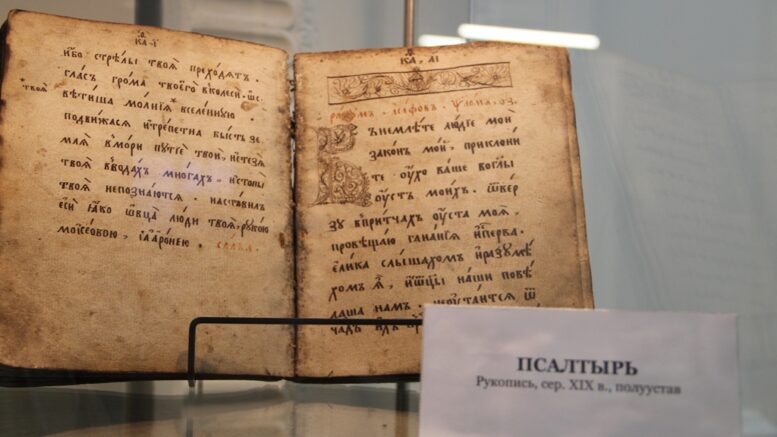 к҃а-ї
и҆́бо стрѣ́лы твоѧ̀ прехо́дѧтъ ·
гла́съ гро́ма твоегѡ̀ вколесѝ · ѡ҆с
твоѧ̀
вѣти́ша мо́лнїѧ вселе́ннꙋю ·
подви́жасѧ и҆трепе́тна бы́сть зе
млѧ̀ вмо́ри пꙋтїѐ твоѝ , и҆стезѧ̀
твоѧ̀ ввода́хъ мно́гахъ · и҆стопы̀
твоѧ̀ непозна́ютсѧ · наста́вилъ
є҆сѝ ꙗ҆́кѡ ѻ҆́вца лю́ди твоѧ̀ , рꙋко́ю
моѵсе́ѡвою , и҆а҆арѡ́нею · сла́ва ·
к҃а . аі
ра́зꙋмъ · а҆са́фовъ · ѱало́мъ . о҃з
Вънемлѣ́те лю́дїе моѝ
зако́нъ мо́й , приклони́
те ᲂу҆́хо ва́ше во глы
ᲂу҆́стъ мои́хъ · ѿве́р
зꙋ вприт́чахъ ᲂу҆ста̀ моѧ̀ ,
провѣща́ю гана́нїѧ и҆спе́рва ·
є҆ли́ка слы́шахомъ и҆разꙋмѣ́
хомъ ѧ҆̀ , и҆ѻтцы̀ на́ши повѣ́
даша на́мъ · неᲂутаи́шасѧ ѿ
ча́дъ
ПСАЛТЫРЬ
Рукопись, сер. XIX в., полуустав